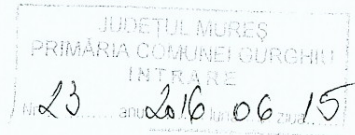 JUDEȚUL MUREȘ
PRIMĂRIA COMUNEI GURGHIU
INTRARE
Nr. 23 anul 2016 luna 06 ziua 15